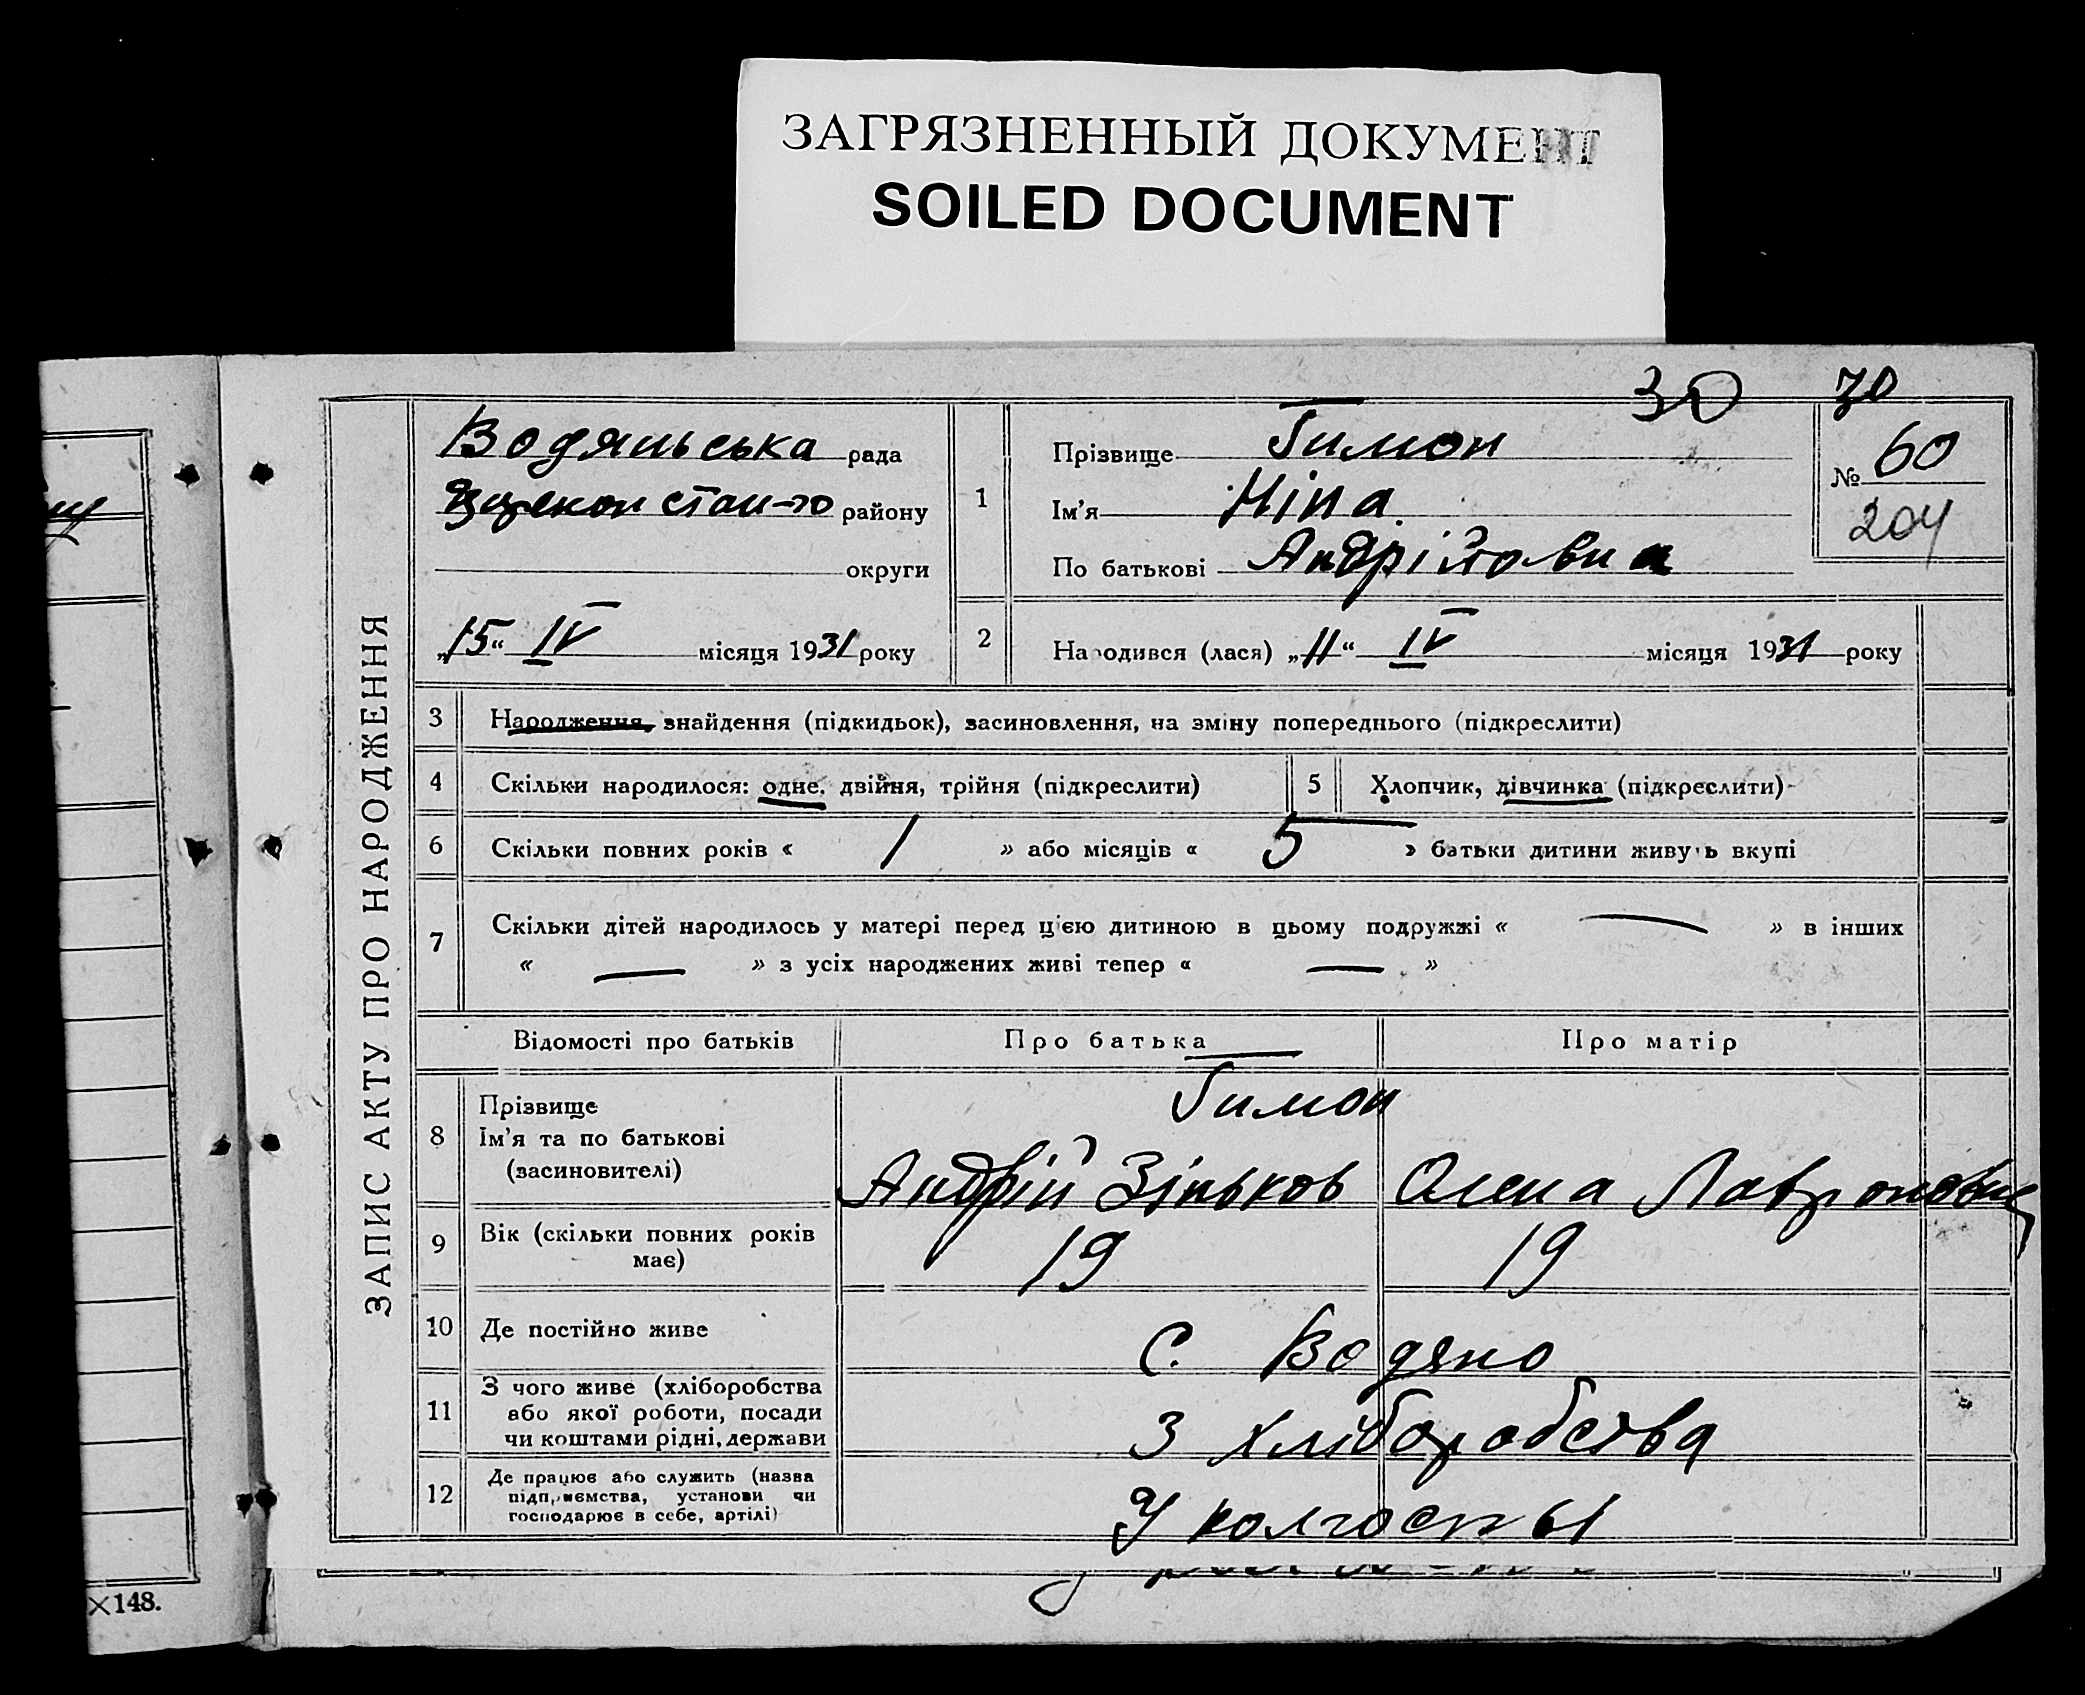 ЗАГРЯЗНЕННЫЙ ДОКУМЕНТ
SOILED DOCUMENT
30 70
ЗАПИС АКТУ ПРО НАРОДЖЕННЯ
Водянська рада
району
округи
„15“ IV місяця 1931 року
1
Прізвище Гимон
Ім'я Ніна
По батькові Андріївна
№ 60
204
2 Народився (лася) „11“ IV місяця 1931 року
3 Народження, знайдення (підкидьок), засиновлення, на зміну попереднього (підкреслити)
4 Скільки народилося: одне, двійня, трійня (підкреслити) 5 Хлопчик, дівчинка (підкреслити)
6 Скільки повних років « 1 » або місяців « 5 » батьки дитини живуть вкупі
7 Скільки дітей народилось у матері перед цією дитиною в цьому подружжі « — » в інших
« — » з усіх народжених живі тепер « — »
Відомості про батьків Про батька Про матір
8 Прізвище
Ім'я та по батькові
(засиновителі)
Гимон
Андрій Зіньков Олена
9 Вік (скільки повних років
має)
19 19
10 Де постійно живе С. Водяно
11 З чого живе (хліборобства
або якої роботи, посади
чи коштами рідні, держави
З хліборобства
12 Де працює або служить (назва
підприємства, установи чи
господарює в себе, артілі)
У колгоспы
×148.